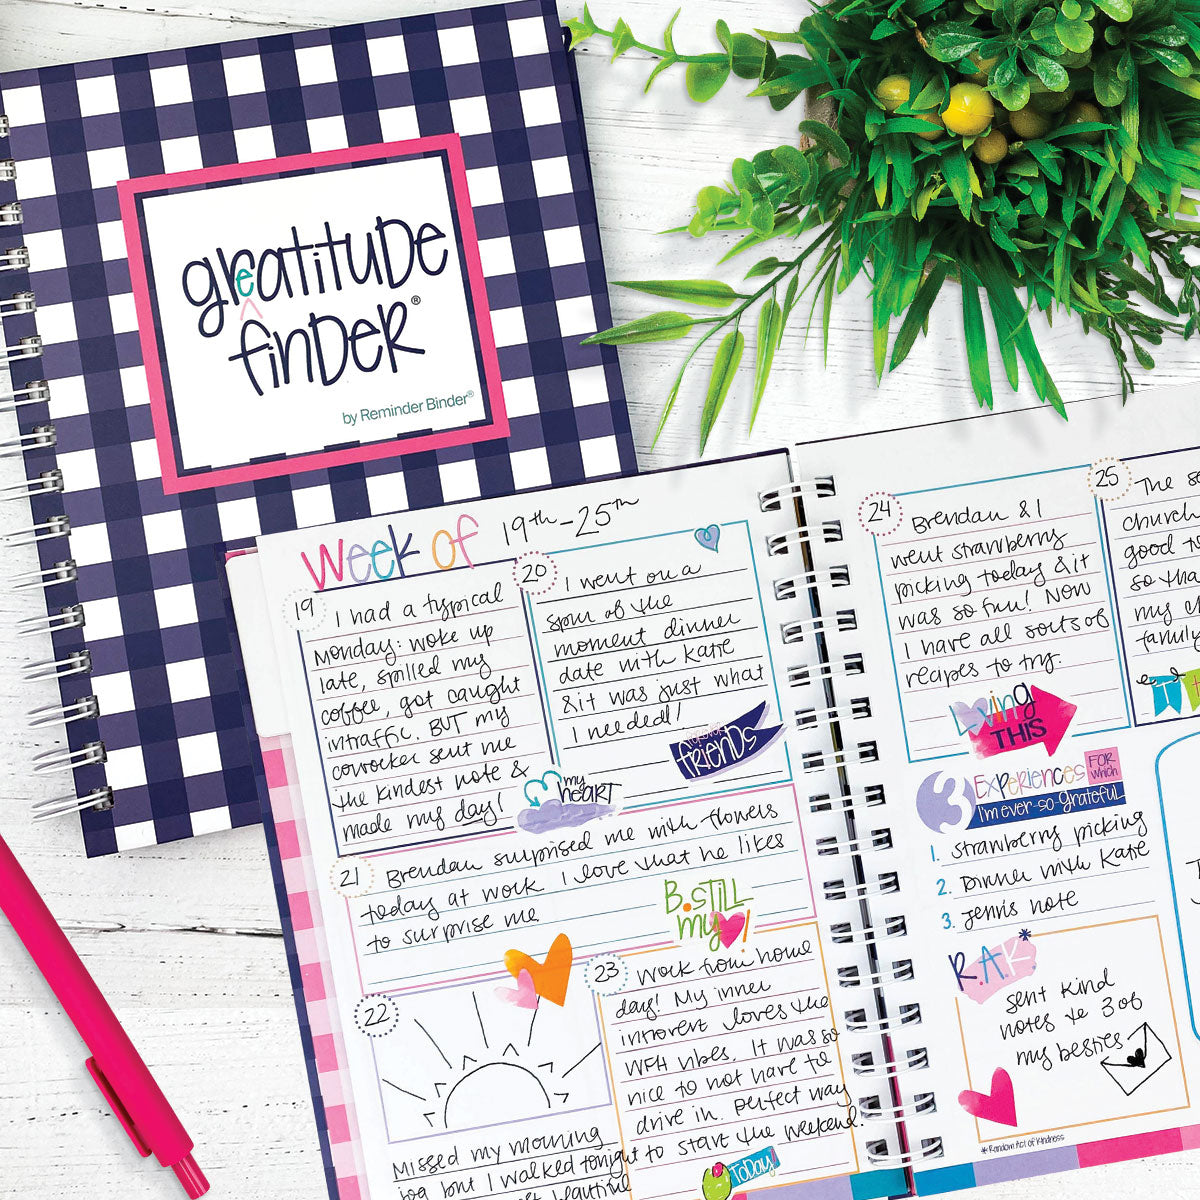 greatitude
finder®
by Reminder Binder®
Week of 19th-25th
19
I had a typical
Monday: woke up
late, spilled my
coffee, got caught
in traffic. BUT my
coworker sent me
the kindest note &
made my day!
my
heART
20
I went on a
spur of the
moment dinner
date with Katie
& it was just what
I needed!
friends
21
Brendan surprised me with flowers
today at work I love that he likes
to surprise me
B.STILL
my
!
22
Missed my morning
jog but I walked tonight
23
Work from home
day! My inner
introvert loves the
WFH vibes. It was so
nice to not have to
drive in. Perfect way
to start the weekend.
ToDay!
24
Brendan & I
went strawberry
picking today & it
was so fun! Now
I have all sorts of
recipes to try.
Loving
THIS
25
The
church
good
so tha
my
family
3 EXPERIENCES FOR which
I'm ever-so-grateful
1. strawberry picking
2. Dinner with Katie
3. Jenni's note
R.A.K*
sent kind
notes to 3 of
my besties
*Random Act of Kindness